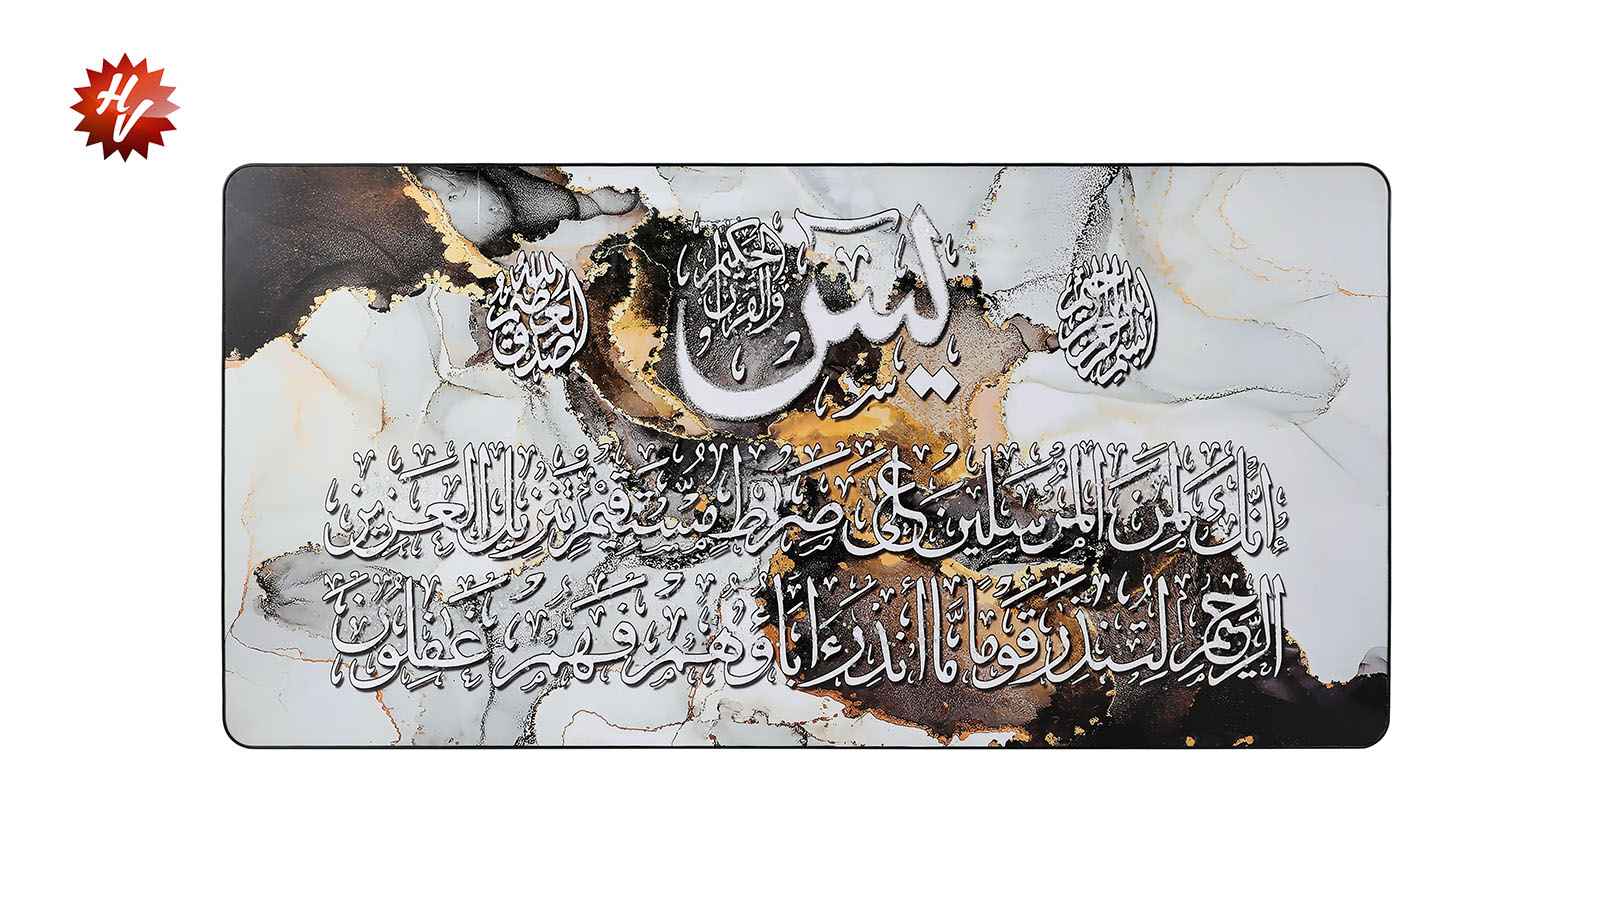 HV
بسم الله الرحمن الرحيم
يس
والقرآن الحكيم
صدق الله العظيم
إنك لمن المرسلين على صرط مستقيم تنزيل العزيز
الرحيم لتنذر قوما ما أنذر ءاباؤهم فهم غفلون